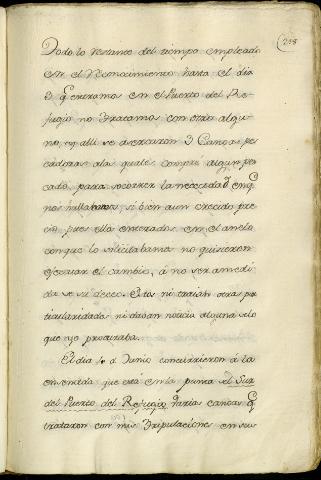 218
Todo lo restante del tiempo empleado
en el Reconocimiento hasta el dia
3 q entramos en el Puerto del Re-
fugio no tratamos con otro algu-
no, q alli se acercaron 3 Canoas pes
cadoras alas quales compré algun pes
cado, para socorrer la necesidad enq
nos hallabamos, si bien aun crecido pre
cio, pues ellos enterados en el ancia
conque lo solicitabamos no quisieron
efectuar el cambio, á no ser amedi-
da de su deceo. Estos ni traian otras par
ticularidades ni daban noticia alguna delo
que yo procuraba.
El dia 4 de Junio concurrieron á la
ensenada que está en la punta del Sur
del Puerto del Refugio varias canoas q
trataron con mis Tripulaciones en sus